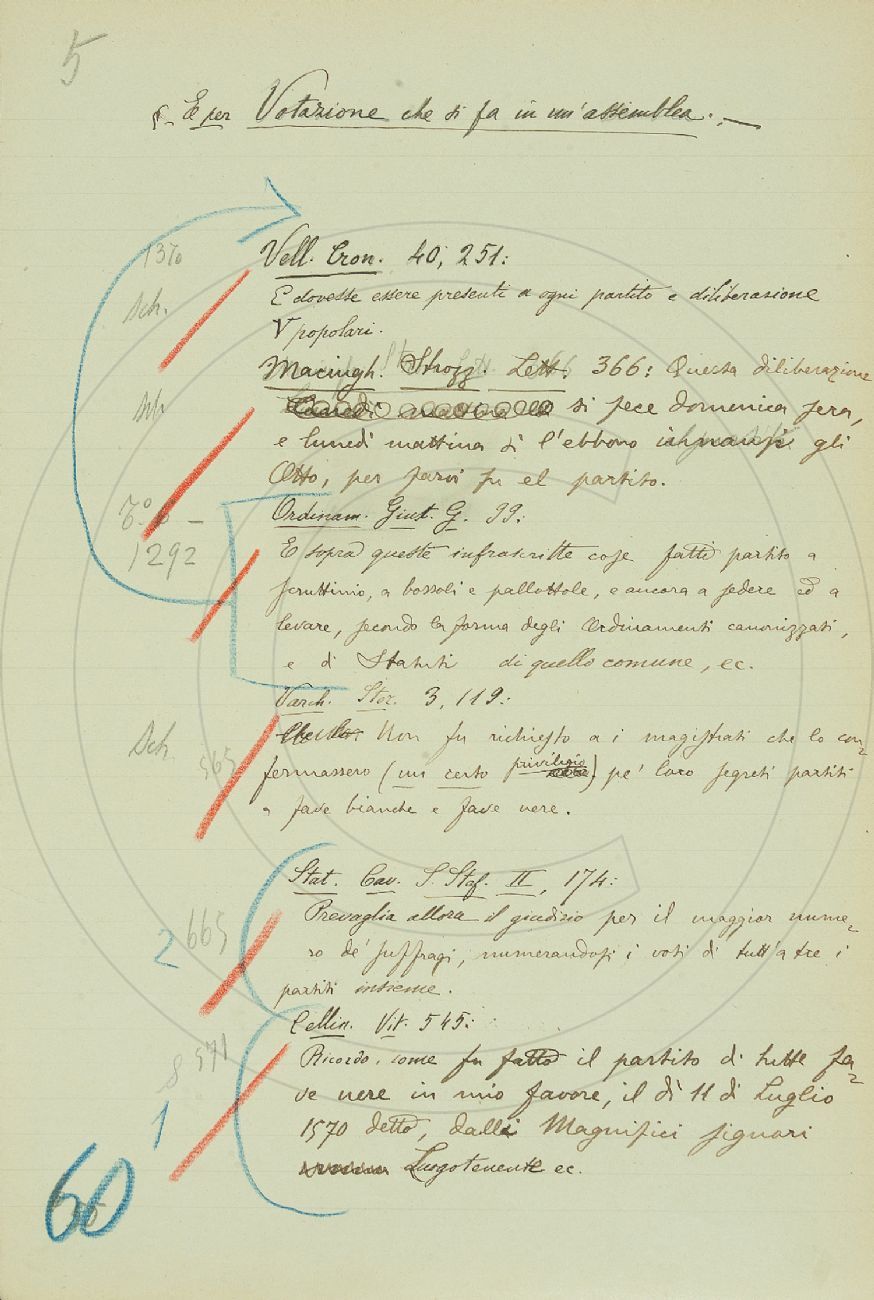 5
§ - E per Votazione che si fa in un' assemblea. -
Vell. Cron. 40, 251:
137
Sch.
E dovesse essere presenti a ogni partito e diliberazione
V popolari.
Macingh. Strozz. Lett. 366: Questa diliberazione
si fece domenica sera,
e lunedì mattina sì l'ebbono gli
Otto, per farvi su el partito.
Ordinam. Giust. G. 99:
1292
E sopra queste infrascritte cose fatto partito a
scruttinio, a bossoli e pallottole, e ancora a sedere ed a
levare, secondo la forma degli Ordinamenti canonizzati,
e di Statuti di quello comune, ec.
Varch. Stor. 3, 119:
Sch.
565
Non fu richiesto a i magistrati che lo con=
fermassero (un certo privilegio) pe' loro segreti partiti
a fave bianche e fave nere.
Stat. Cav. S. Stef. II, 174:
2 665
Prevaglia allora il giudizio per il maggior nume=
ro de' suffragi, numerandosi i voti di tutt'a tre i
partiti insieme.
Cellin. Vit. 545:
8 571
Ricordo, come fu fatto il partito di tutte fa=
ve nere in mio favore, il dì 11 di Luglio
1
1570 detto, dalli Magnifici signori
Luogotenente ec.
60